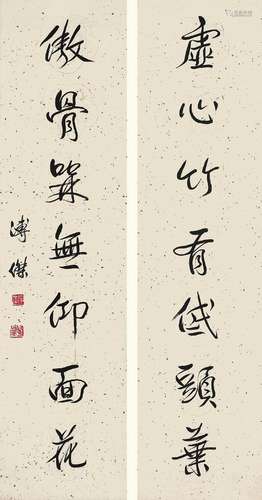 虛心竹有低頭葉
傲骨梅無仰面花
溥傑